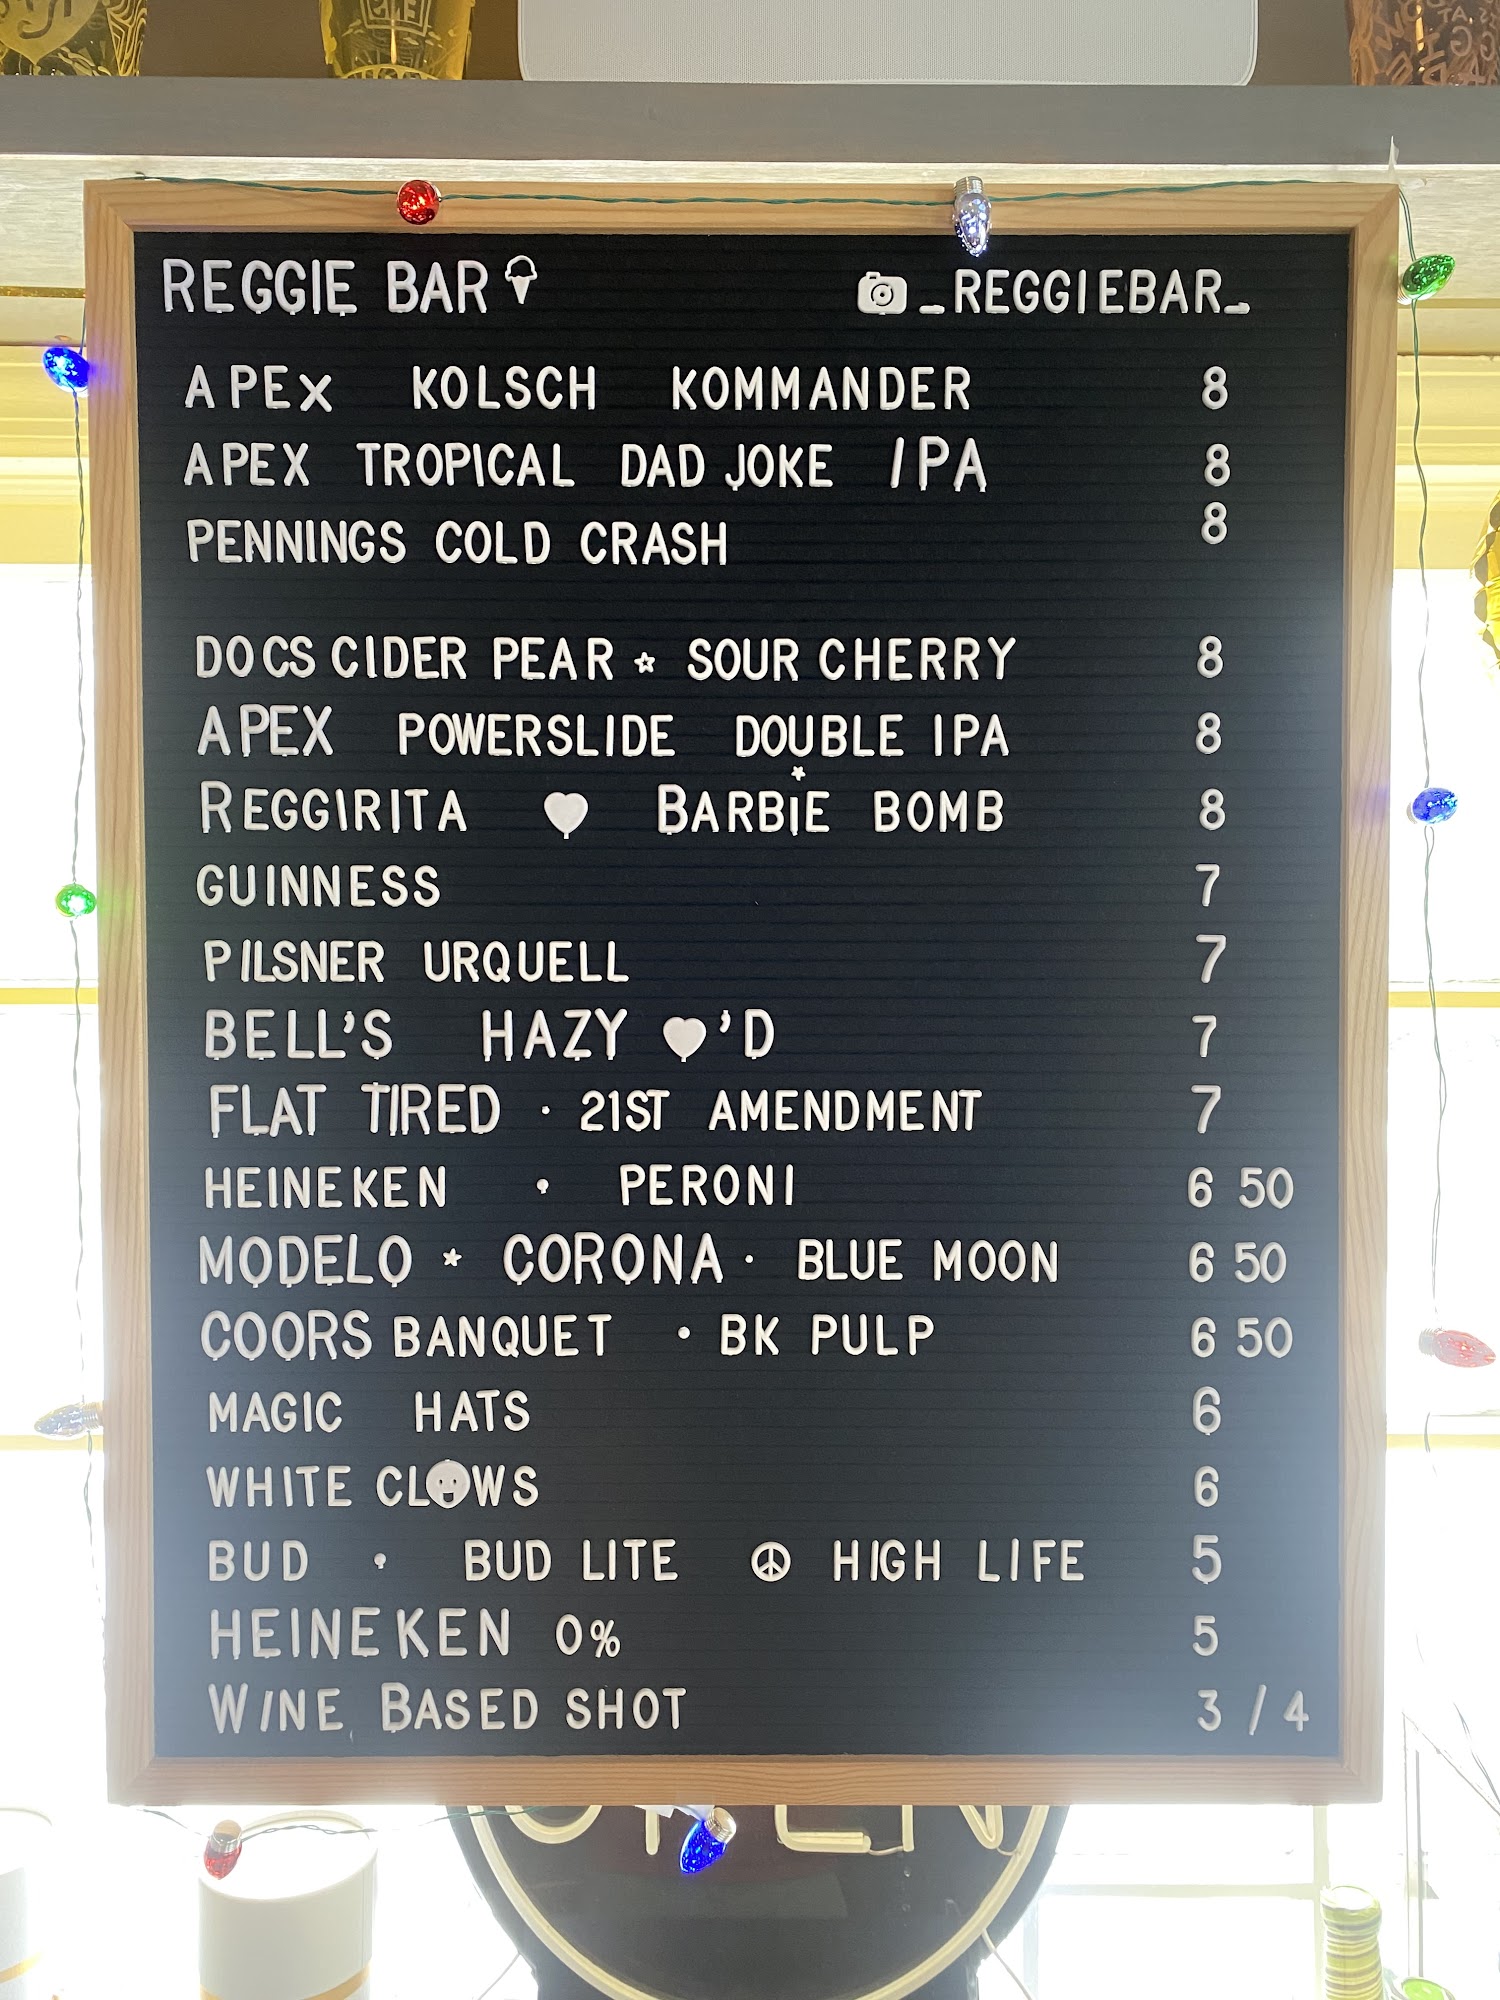 REGGIE BAR _REGGIEBAR_
APEX KOLSCH KOMMANDER 8
APEX TROPICAL DAD JOKE IPA 8
PENNINGS COLD CRASH 8
DOCS CIDER PEAR ☆ SOUR CHERRY 8
APEX POWERSLIDE DOUBLE IPA 8
REGGIRITA ♥ BARBIE BOMB 8
GUINNESS 7
PILSNER URQUELL 7
BELL'S HAZY ♥'D 7
FLAT TIRED · 21ST AMENDMENT 7
HEINEKEN · PERONI 6 50
MODELO * CORONA · BLUE MOON 6 50
COORS BANQUET · BK PULP 6 50
MAGIC HATS 6
WHITE CLOWS 6
BUD · BUD LITE ☮ HIGH LIFE 5
HEINEKEN 0% 5
WINE BASED SHOT 3 / 4
OPEN